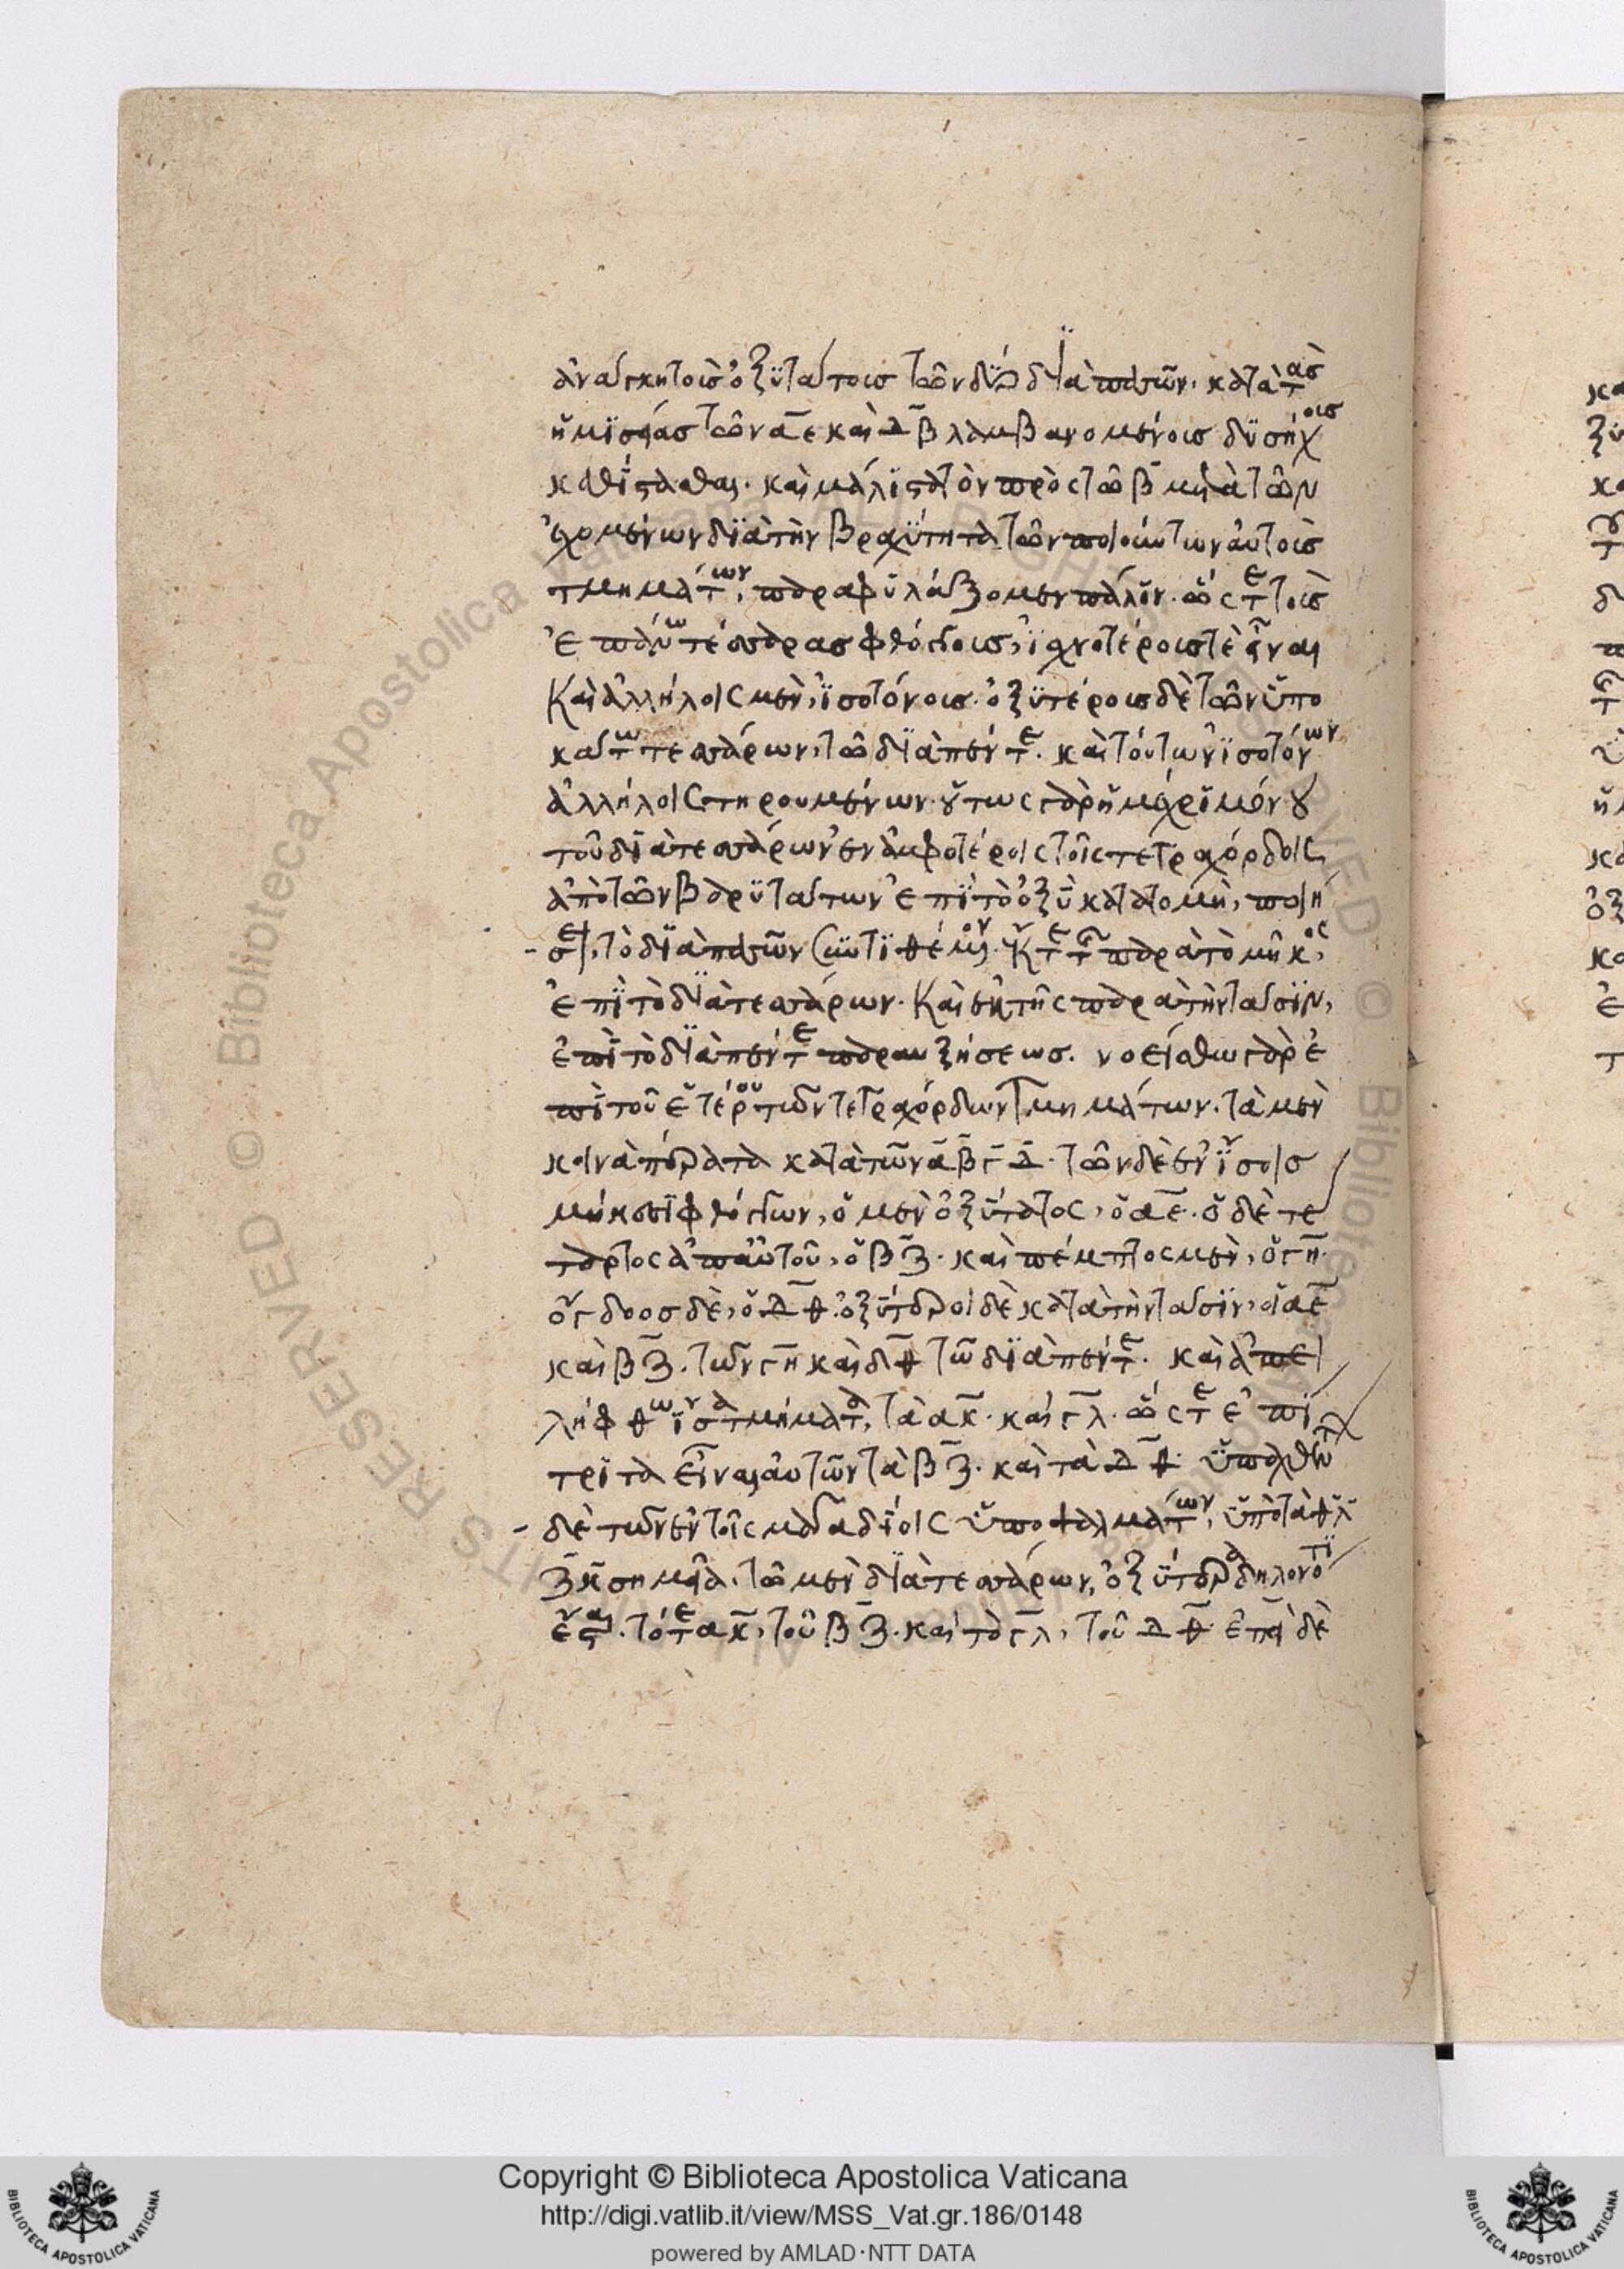 ἀναγκητοῖς ὀξϋτάτοις τῶν δύο διὰ πασῶν. κατὰ τὰς
ἡμισείας τῶν αε καὶ δβ λαμβανομένοις δϋσήχοις
καθίστασθαι. καὶ μάλιστα τὸν πρὸς τῶ β μετὰ τῶν
ἐχομένων διὰ τὴν βραχϋτητα τῶν ποιούντων αὐτοὺς
τμημάτων, παραφϋλάξομεν πάλϊν. ὥστε τοὺς
ἐπάνω τέσσαρας φθόγγοις, ἰσχνοτέροις τὲ εἶναι
καὶ ἀλλήλοις μὲν, ἰσοτόνοις. ὀξϋτέροις δὲ τῶν ὑπο
κάτω τεσσάρων, τῶ διὰ πέντε. καὶ τούτων ἰσοτόνων
ἀλλήλοις τηρουμένων. οὕτως γὰρ ἡ μέχρϊ μόνου
τοῦ διὰ τεσσάρων ἐν ἀμφοτέροις τοῖς τετραχόρδοις
ἀπὸ τῶν βαρϋτάτων ἐπὶ τὸ ὀξϋ κατατομὴ, ποιή
σει, τὸ διὰ πασῶν συντιθέμενον. ἔκ τε τῆς παρὰ τὸ μῆκος,
ἐπὶ τὸ διὰ τεσσάρων. καὶ ἐκ τῆς παρὰ τὴν τάσϊν,
ἐπὶ τὸ διὰ πέντε παραυξήσεως. νοείσθω γὰρ ἐ
πὶ τοῦ ἑτέρου τῶν τετραχόρδων τμημάτων. τὰ μὲν
κοινὰ πέρατα κατὰ τῶν αβγδ. τῶν δὲ ἐν ἴσοις
μήκεσϊ φθόγγων, ὁ μὲν ὀξϋτατος, ὁ αε. ὁ δὲ τέ
ταρτος ἀπ αὐτοῦ, ὁ βζ. καὶ πέμπτος μὲν, ὁ γη.
ὄγδοος δὲ, ὁ δθ. ὀξϋτεροι δὲ κατὰ τὴν τάσϊν, οἱ αε
καὶ βζ. τῶν γη καὶ δθ τῶ διὰ πέντε. καὶ ἀπει
λήφθω ἴσα τμήματα, τὰ ακ. καὶ γλ. ὥστε ἐπί
τριτα εἶναι αὐτῶν τὰ βζ. καὶ τὰ δθ. ὑπαχθέντων
δὲ τῶν ἐν τοῖς μαγαδίοις ὑποψαλμάτων, ὑπὸ τὰ θλ
ζκ σημεῖα. τῶ μὲν διὰ τεσσάρων, ὀξϋτερα δηλονότι
ἔσται. τό τε ακ, τοῦ βζ. καὶ τὸ γλ, τοῦ δθ. ἐπεὶ δὲ
Copyright © Biblioteca Apostolica Vaticana
http://digi.vatlib.it/view/MSS_Vat.gr.186/0148
powered by AMLAD·NTT DATA